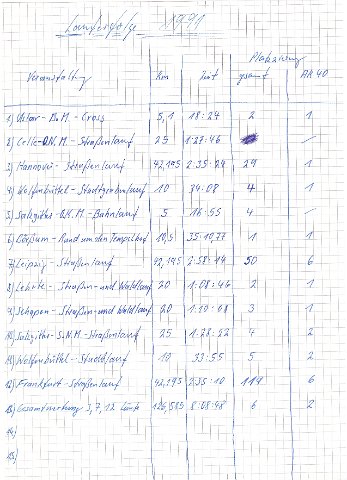 Lauferfolge 1991
Platzierung
Veranstaltung km Zeit gesamt AK 40
1) - B.M. - Cross 5,1 18:24 2 1
2) Celle - - Straßenlauf 25 1:27:46 –
3) Hannover - Straßenlauf 42,195 2:35:24 29 1
4) Wolfenbüttel - Stadtgrabenlauf 10 34:08 4 1
5) - Bahnlauf 5 16:55 4 –
6) - Rund um den 10,5 35:10,77 1 1
7) Leipzig - Straßenlauf 42,195 2:58:14 50 6
8) Lehrte - Straßen- und Waldlauf 20 1:08:46 2 1
9) - Straßen- und Waldlauf 20 1:10:48 3 1
10) - Straßenlauf 25 1:28:22 4 2
11) Wolfenbüttel - Stadtlauf 10 33:55 5 2
12) Frankfurt - Straßenlauf 42,195 2:35:10 119 6
13) Gesamtwertung 3, 7, 12 Läufe 126,585 8:08:48 6 2
14)
15)